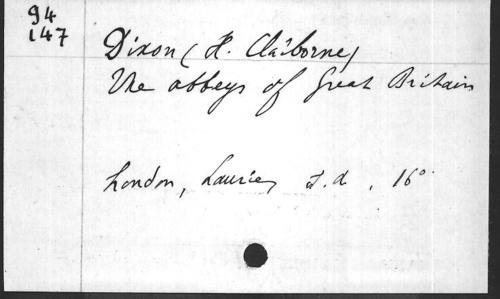 94
147
Dixon (H. Claiborne)
The abbeys of Great Britain
London, Laurie, s.d., 16°.